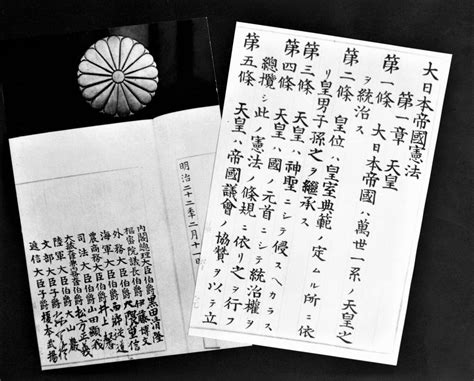 大日本帝國憲法
第一章 天皇
第一條 大日本帝國ハ萬世一系ノ天皇之
ヲ統治ス
第二條 皇位ハ皇室典範ノ定ムル所ニ依
リ皇男子孫之ヲ繼承ス
第三條 天皇ハ神聖ニシテ侵スヘカラス
第四條 天皇ハ國ノ元首ニシテ統治權ヲ
總攬シ此ノ憲法ノ條規ニ依リ之ヲ行フ
第五條 天皇ハ帝國議會ノ協贊ヲ以テ立
明治二十二年二月十一
内閣總理大臣伯爵黒田清隆
樞密院議長伯爵伊藤博文
外務大臣伯爵大隈重信
海軍大臣伯爵西郷從道
農商務大臣伯爵井上馨
司法大臣伯爵山田顯義
伯爵松方正義
陸軍大臣伯爵大山巖
文部大臣子爵
遞信大臣子爵榎本武揚